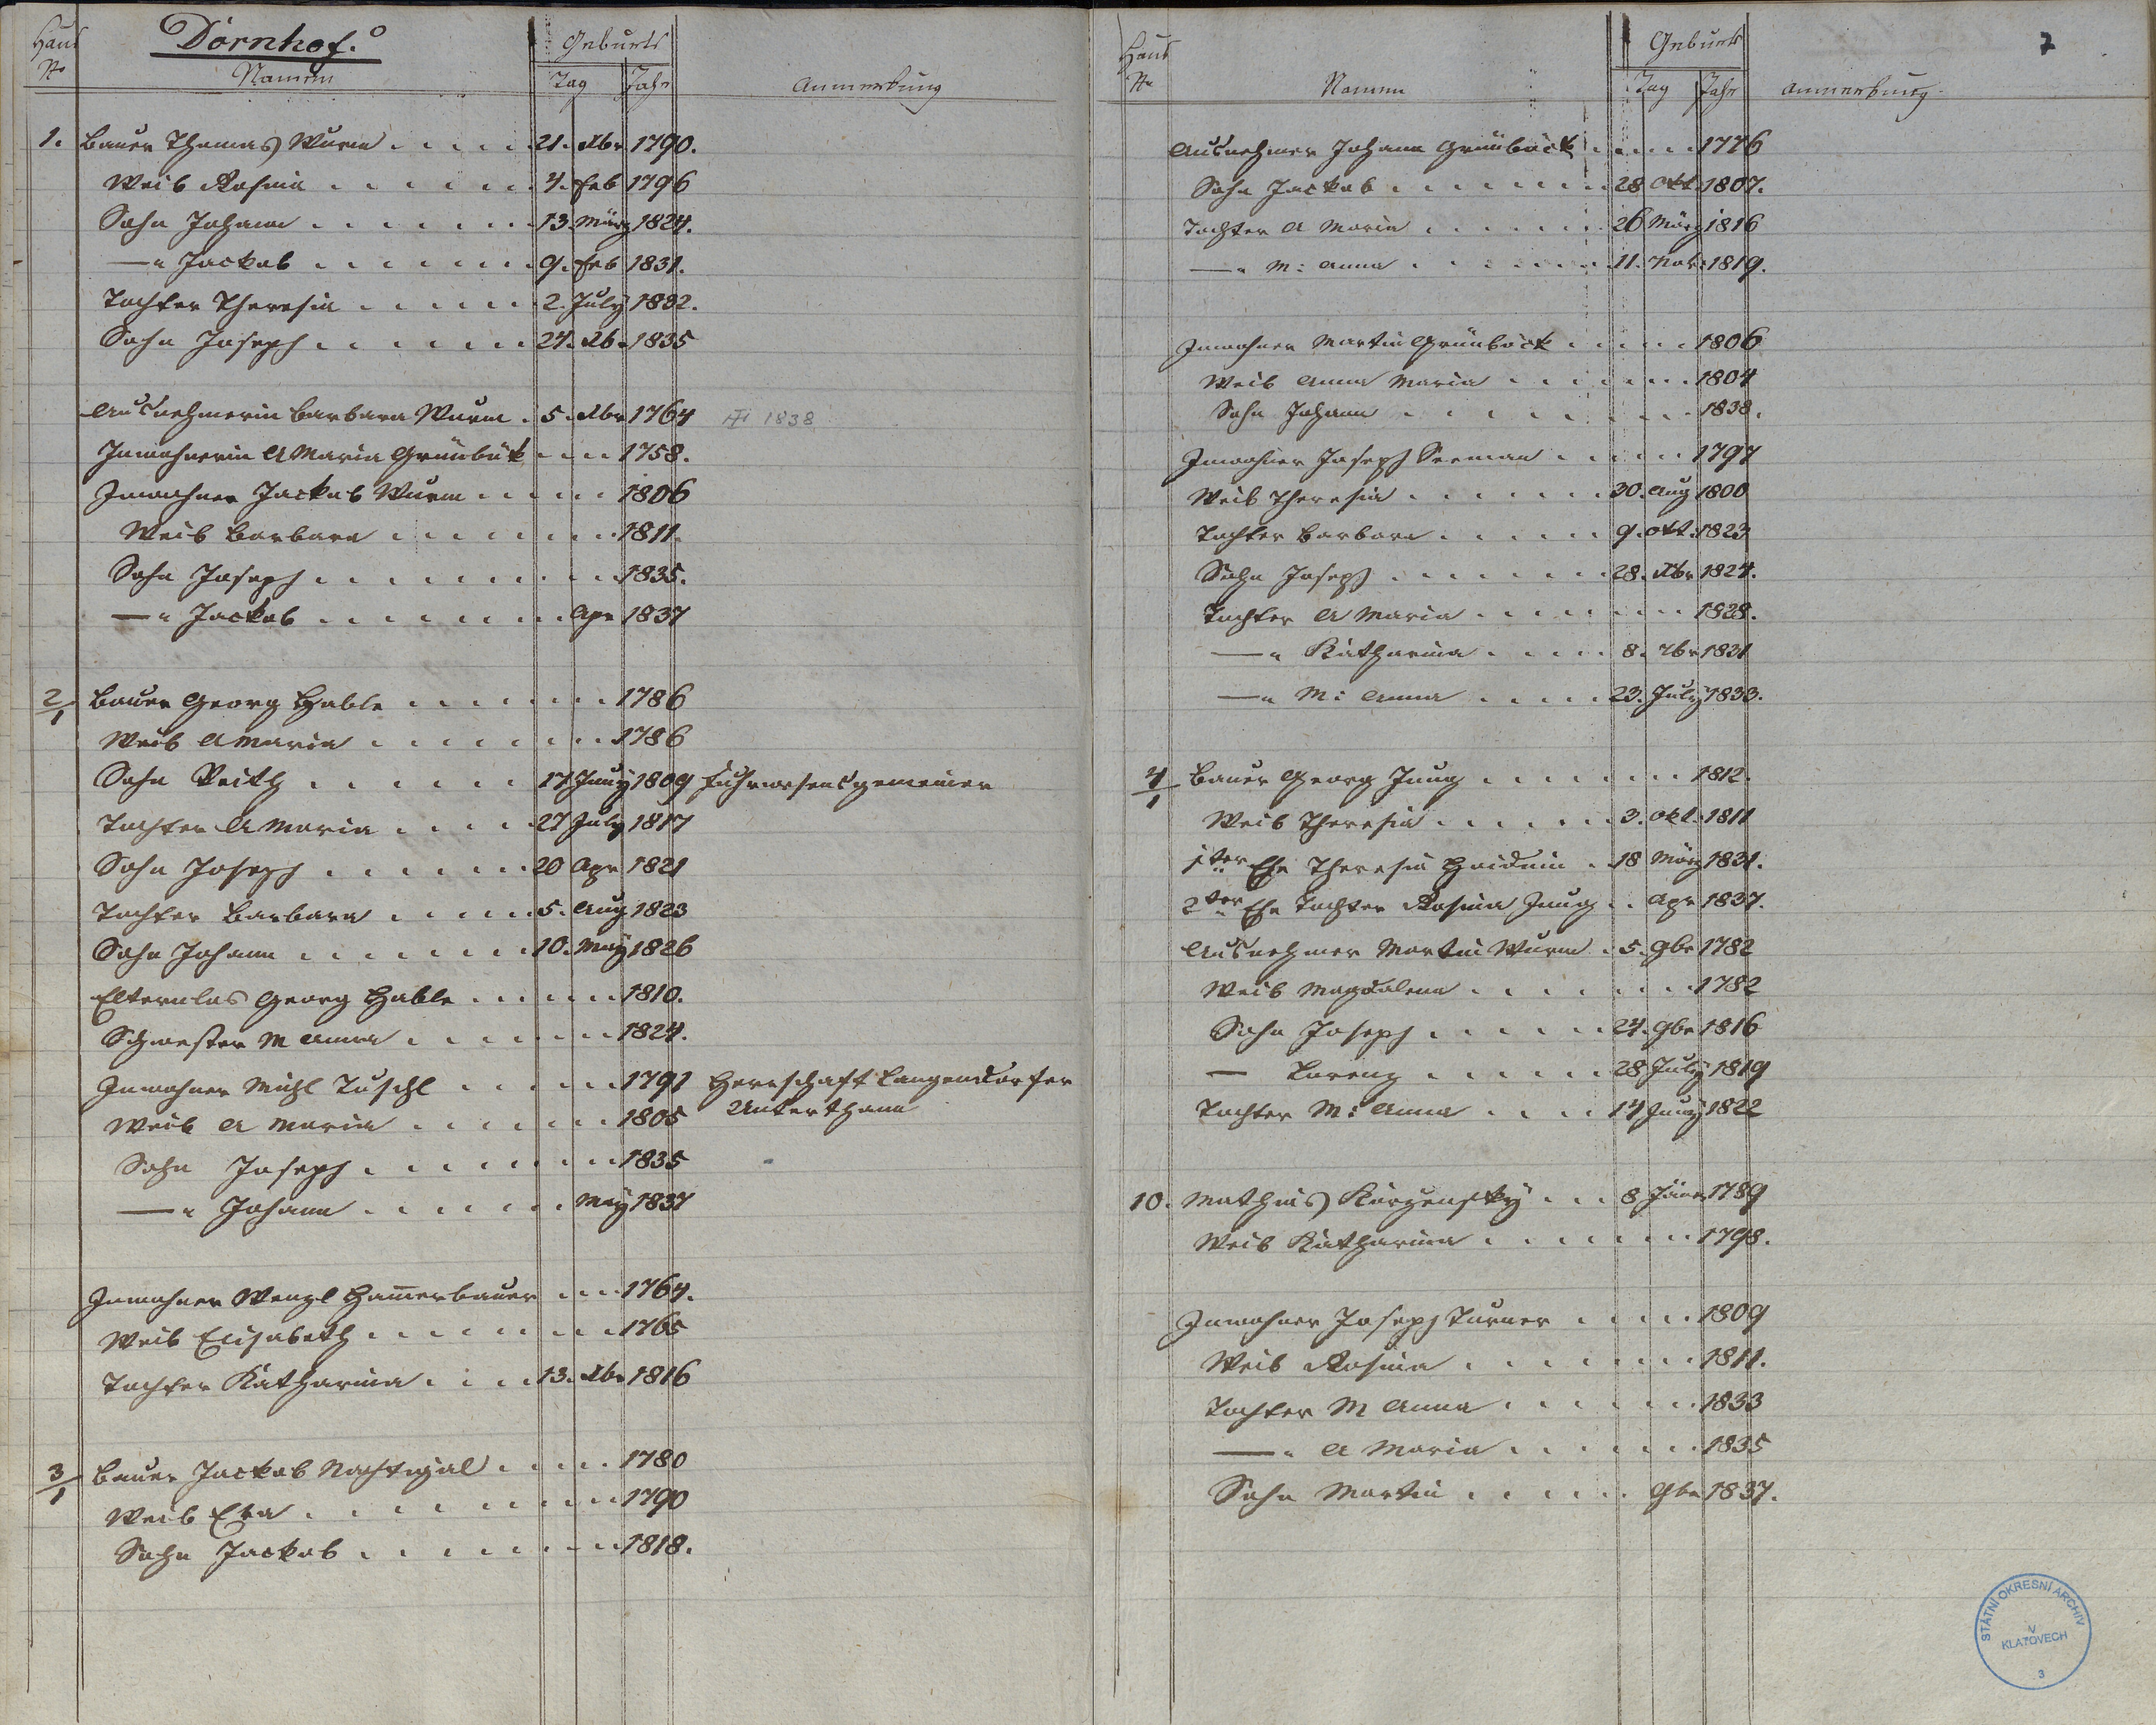 Haus
No
Dörnhof.
Namen
Geburts
Tag Jahr
Anmerkung
1. Bauer Thomas Wurm 21. Xbr 1790.
Weib Rosina 4. Feb 1796
Sohn Johann 13. März 1824.
—" Jackob 9. Feb 1831.
Tochter Theresia 2. July 1832.
Sohn Joseph 24. Xbr 1835
Ausnehmerin Barbara Wurm 5. Xbr 1764 1838
Inwohnerin A Maria Grünbük 1758.
Inwohner Jackob Wurm 1806
Weib Barbara 1811.
Sohn Joseph 1835.
—" Jackob Apr 1837
2/1 Bauer Georg Hable 1786
Weib A Maria 1786
Sohn Veith 17 Juny 1809 Fuhrwesensgemeiner
Tochter A Maria 27 July 1817
Sohn Joseph 20 Apr 1821
Tochter Barbara 5. Aug 1823
Sohn Johann 10. May 1826
Elternlos Georg Hable 1810.
Schwester M Anna 1824.
Inwohner Michl Tuschl 1791 Herrschaft Langendorfer
Weib A Maria 1805 Unterthann
Sohn Joseph 1835
—" Johann May 1837
Inwohner Wenzl Ham̄erbauer 1764.
Weib Elisabeth 1765
Tochter Katharina 13. Xbr 1816
3/1 Bauer Jackob Nachtigal 1780
Weib Eva 1790
Sohn Jackob 1818.
7
Haus
No
Namen
Geburts
Tag Jahr
Anmerkung
Ausnehmer Johann Grünböck 1776
Sohn Jackob 28 Okt. 1807.
Tochter A Maria 26 März 1816
—" M: Anna 11. Nov: 1819.
Inwohner Martin Grünböck 1806
Weib Anna Maria 1804
Sohn Johann 1838.
Inwohner Joseph Seeman 1797
Weib Theresia 30. Aug 1800
Tochter Barbara 9. Okt: 1823
Sohn Joseph 28. Xbr 1824.
Tochter A Maria 1828.
—" Katharina 8. 7br 1831
—" M: Anna 23. July 1833.
4/1 Bauer Georg Jung 1812.
Weib Theresia 3. Okt. 1811
1ter Ehe Theresia Haiduin 18 März 1831.
2ter Ehe Tochter Rosina Jung Apr 1837.
Ausnehmer Martin Wurm 5. 9br 1782
Weib Magdalena 1782
Sohn Joseph 24. 9br 1816
— Lorenz 28 July 1819
Tochter M: Anna 14 Juny 1822
10. Mathias Kürzensky 8 Jäner 1789
Weib Katharina 1798.
Inwohner Joseph Turner 1809
Weib Rosina 1811.
Tochter M Anna 1833
—" A Maria 1835
Sohn Martin 9br 1837.
STÁTNÍ OKRESNÍ ARCHIV
V
KLATOVECH
3